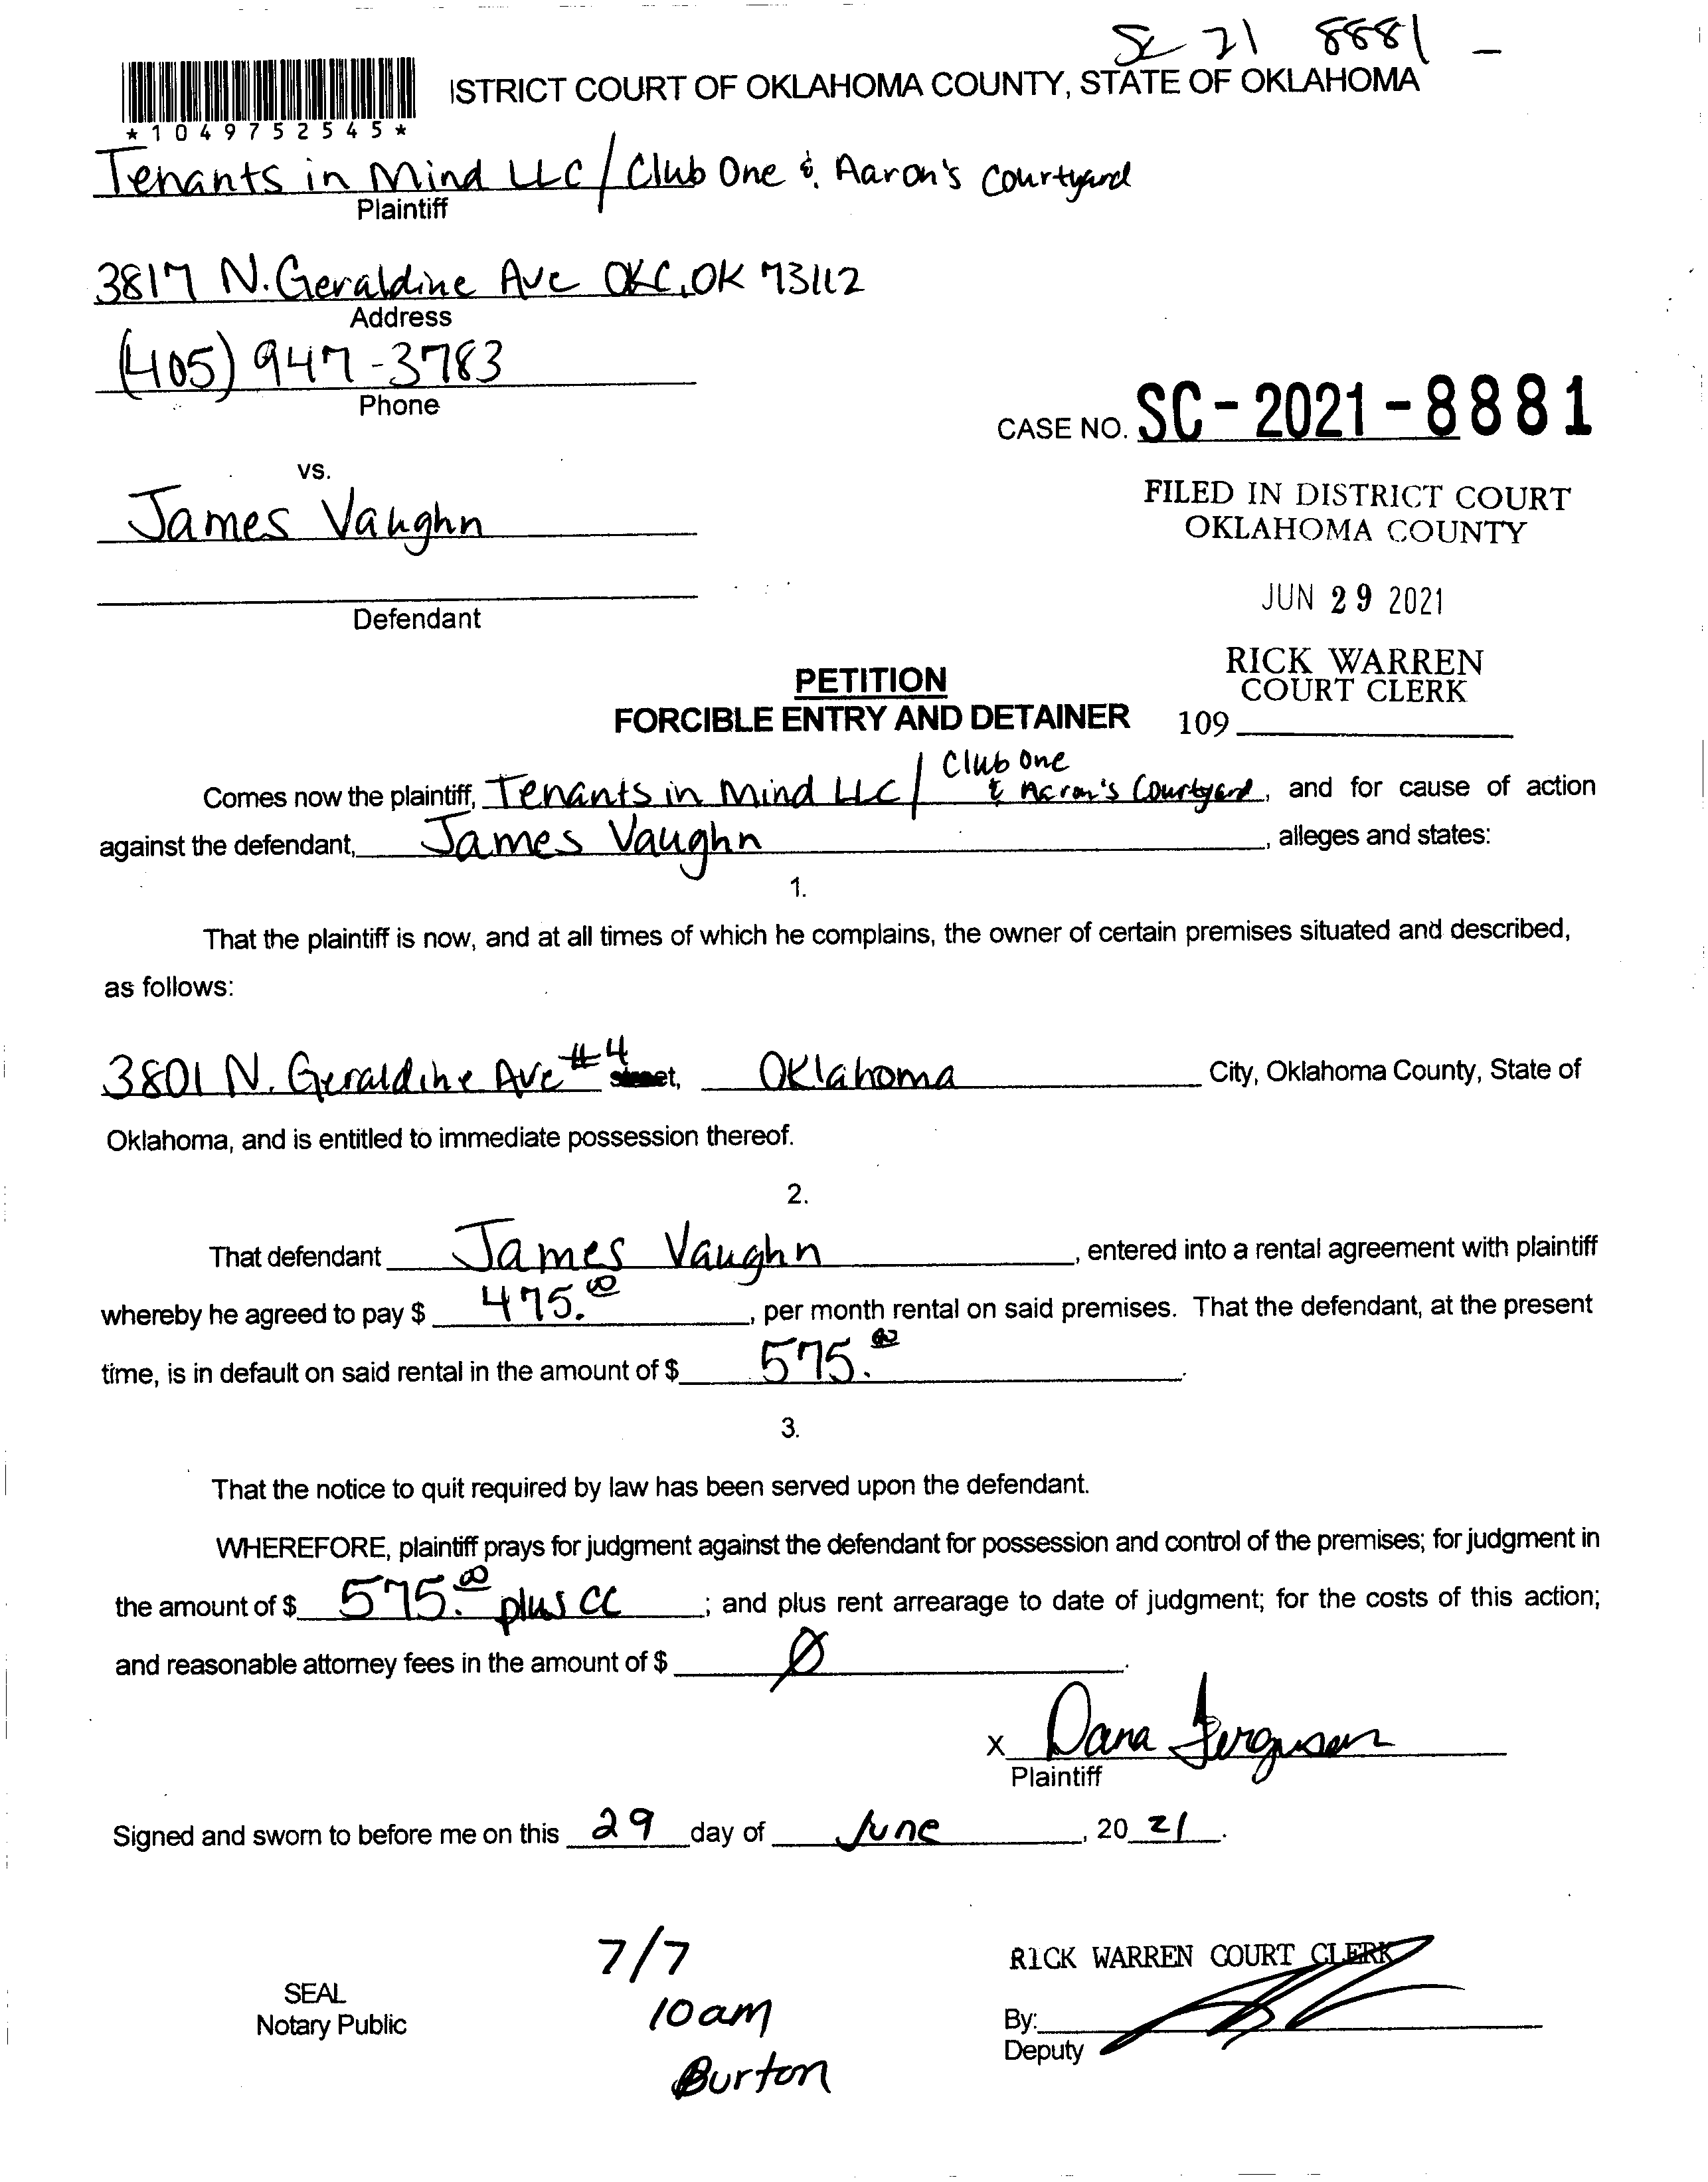 SC 21 8881 -
ISTRICT COURT OF OKLAHOMA COUNTY, STATE OF OKLAHOMA
*1049752545*
Tenants in Mind LLC / Club One & Aaron's Courtyard
Plaintiff
3817 N. Geraldine Ave OKC, OK 73112
Address
(405) 947-3783
Phone
CASE NO. SC-2021-8881
vs.
FILED IN DISTRICT COURT
OKLAHOMA COUNTY
James Vaughn
JUN 29 2021
Defendant
RICK WARREN
COURT CLERK
109
PETITION
FORCIBLE ENTRY AND DETAINER
Comes now the plaintiff, Tenants in Mind LLC / Club One & Aaron's Courtyard, and for cause of action
against the defendant, James Vaughn, alleges and states:
1.
That the plaintiff is now, and at all times of which he complains, the owner of certain premises situated and described,
as follows:
3801 N. Geraldine Ave #4 street, Oklahoma City, Oklahoma County, State of
Oklahoma, and is entitled to immediate possession thereof.
2.
That defendant James Vaughn, entered into a rental agreement with plaintiff
whereby he agreed to pay $ 475.00, per month rental on said premises. That the defendant, at the present
time, is in default on said rental in the amount of $ 575.00.
3.
That the notice to quit required by law has been served upon the defendant.
WHEREFORE, plaintiff prays for judgment against the defendant for possession and control of the premises; for judgment in
the amount of $ 575.00 plus CC; and plus rent arrearage to date of judgment; for the costs of this action;
and reasonable attorney fees in the amount of $ Ø.
X Dana Ferguson
Plaintiff
Signed and sworn to before me on this 29 day of June, 20 21.
7/7
10am
Burton
SEAL
Notary Public
RICK WARREN COURT CLERK
By:
Deputy